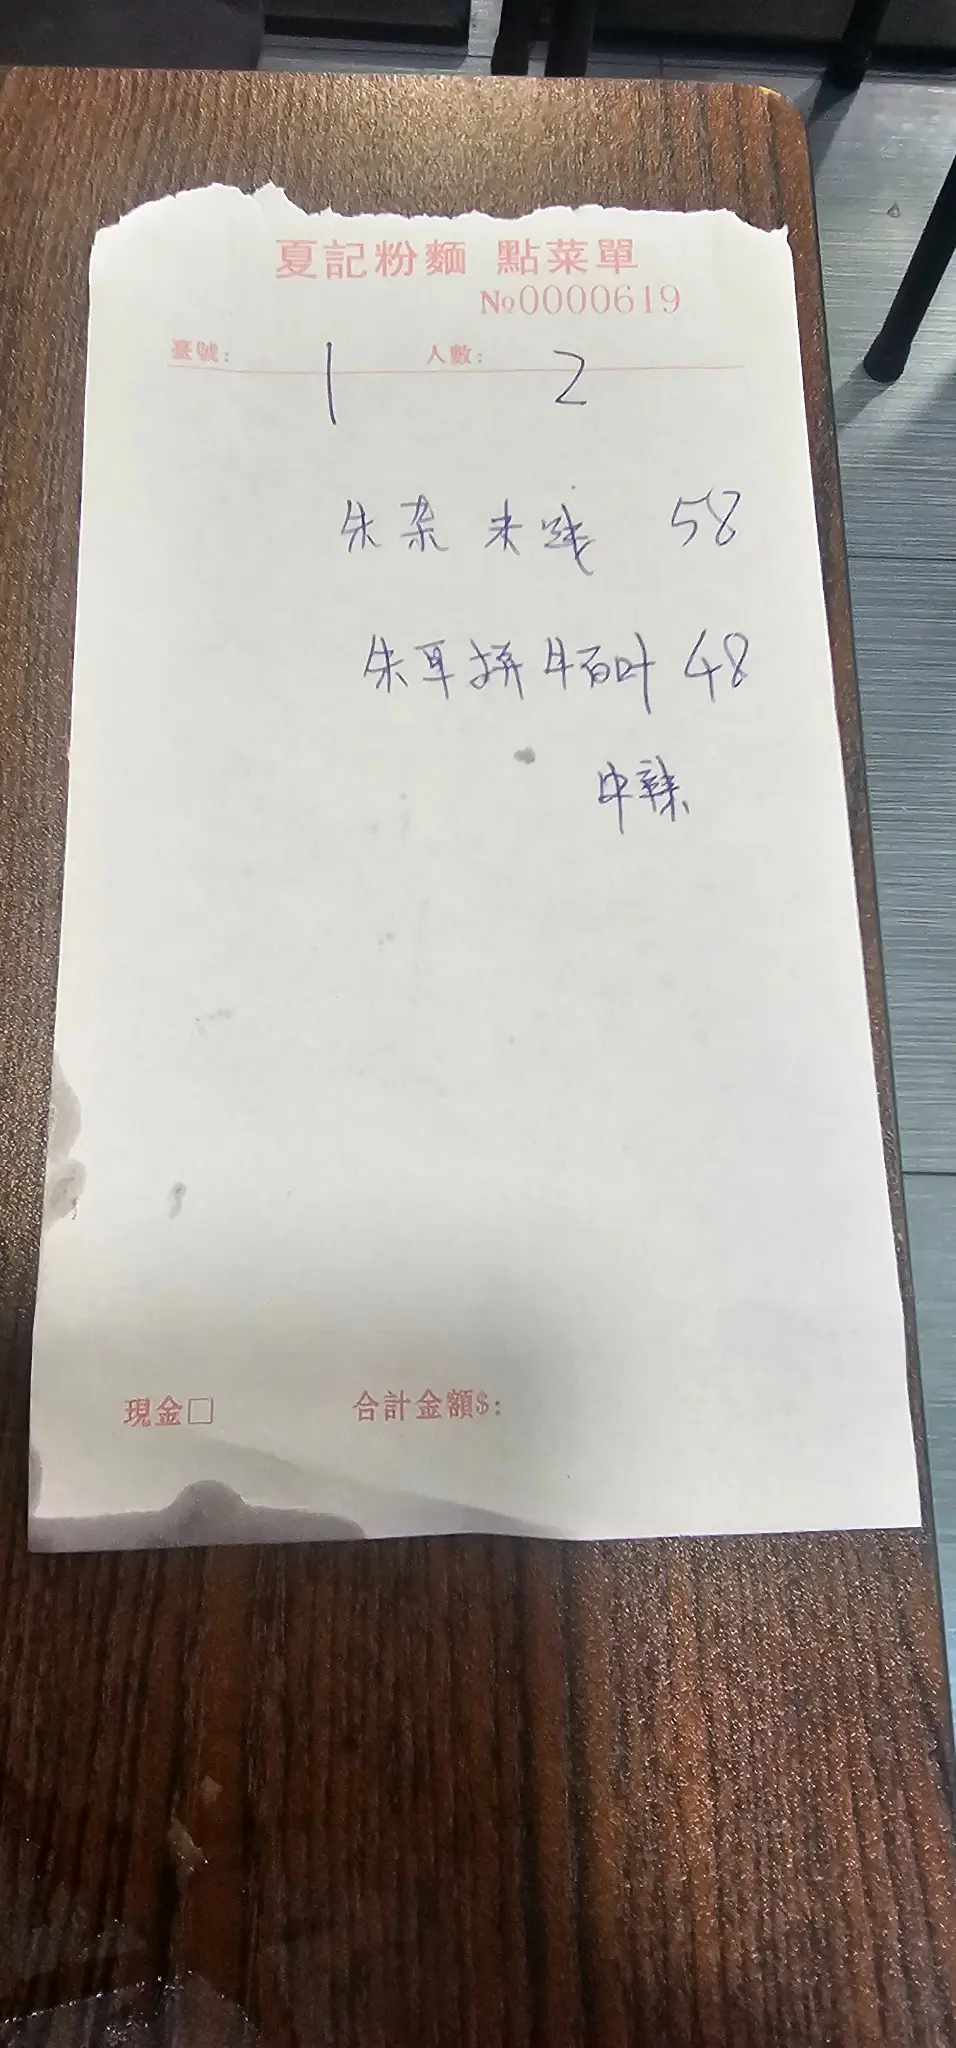 夏記粉麵 點菜單
№0000619
臺號: 1 人數: 2
朱杂 米线 58
朱耳拼牛百叶 48
中辣
現金□ 合計金額$: